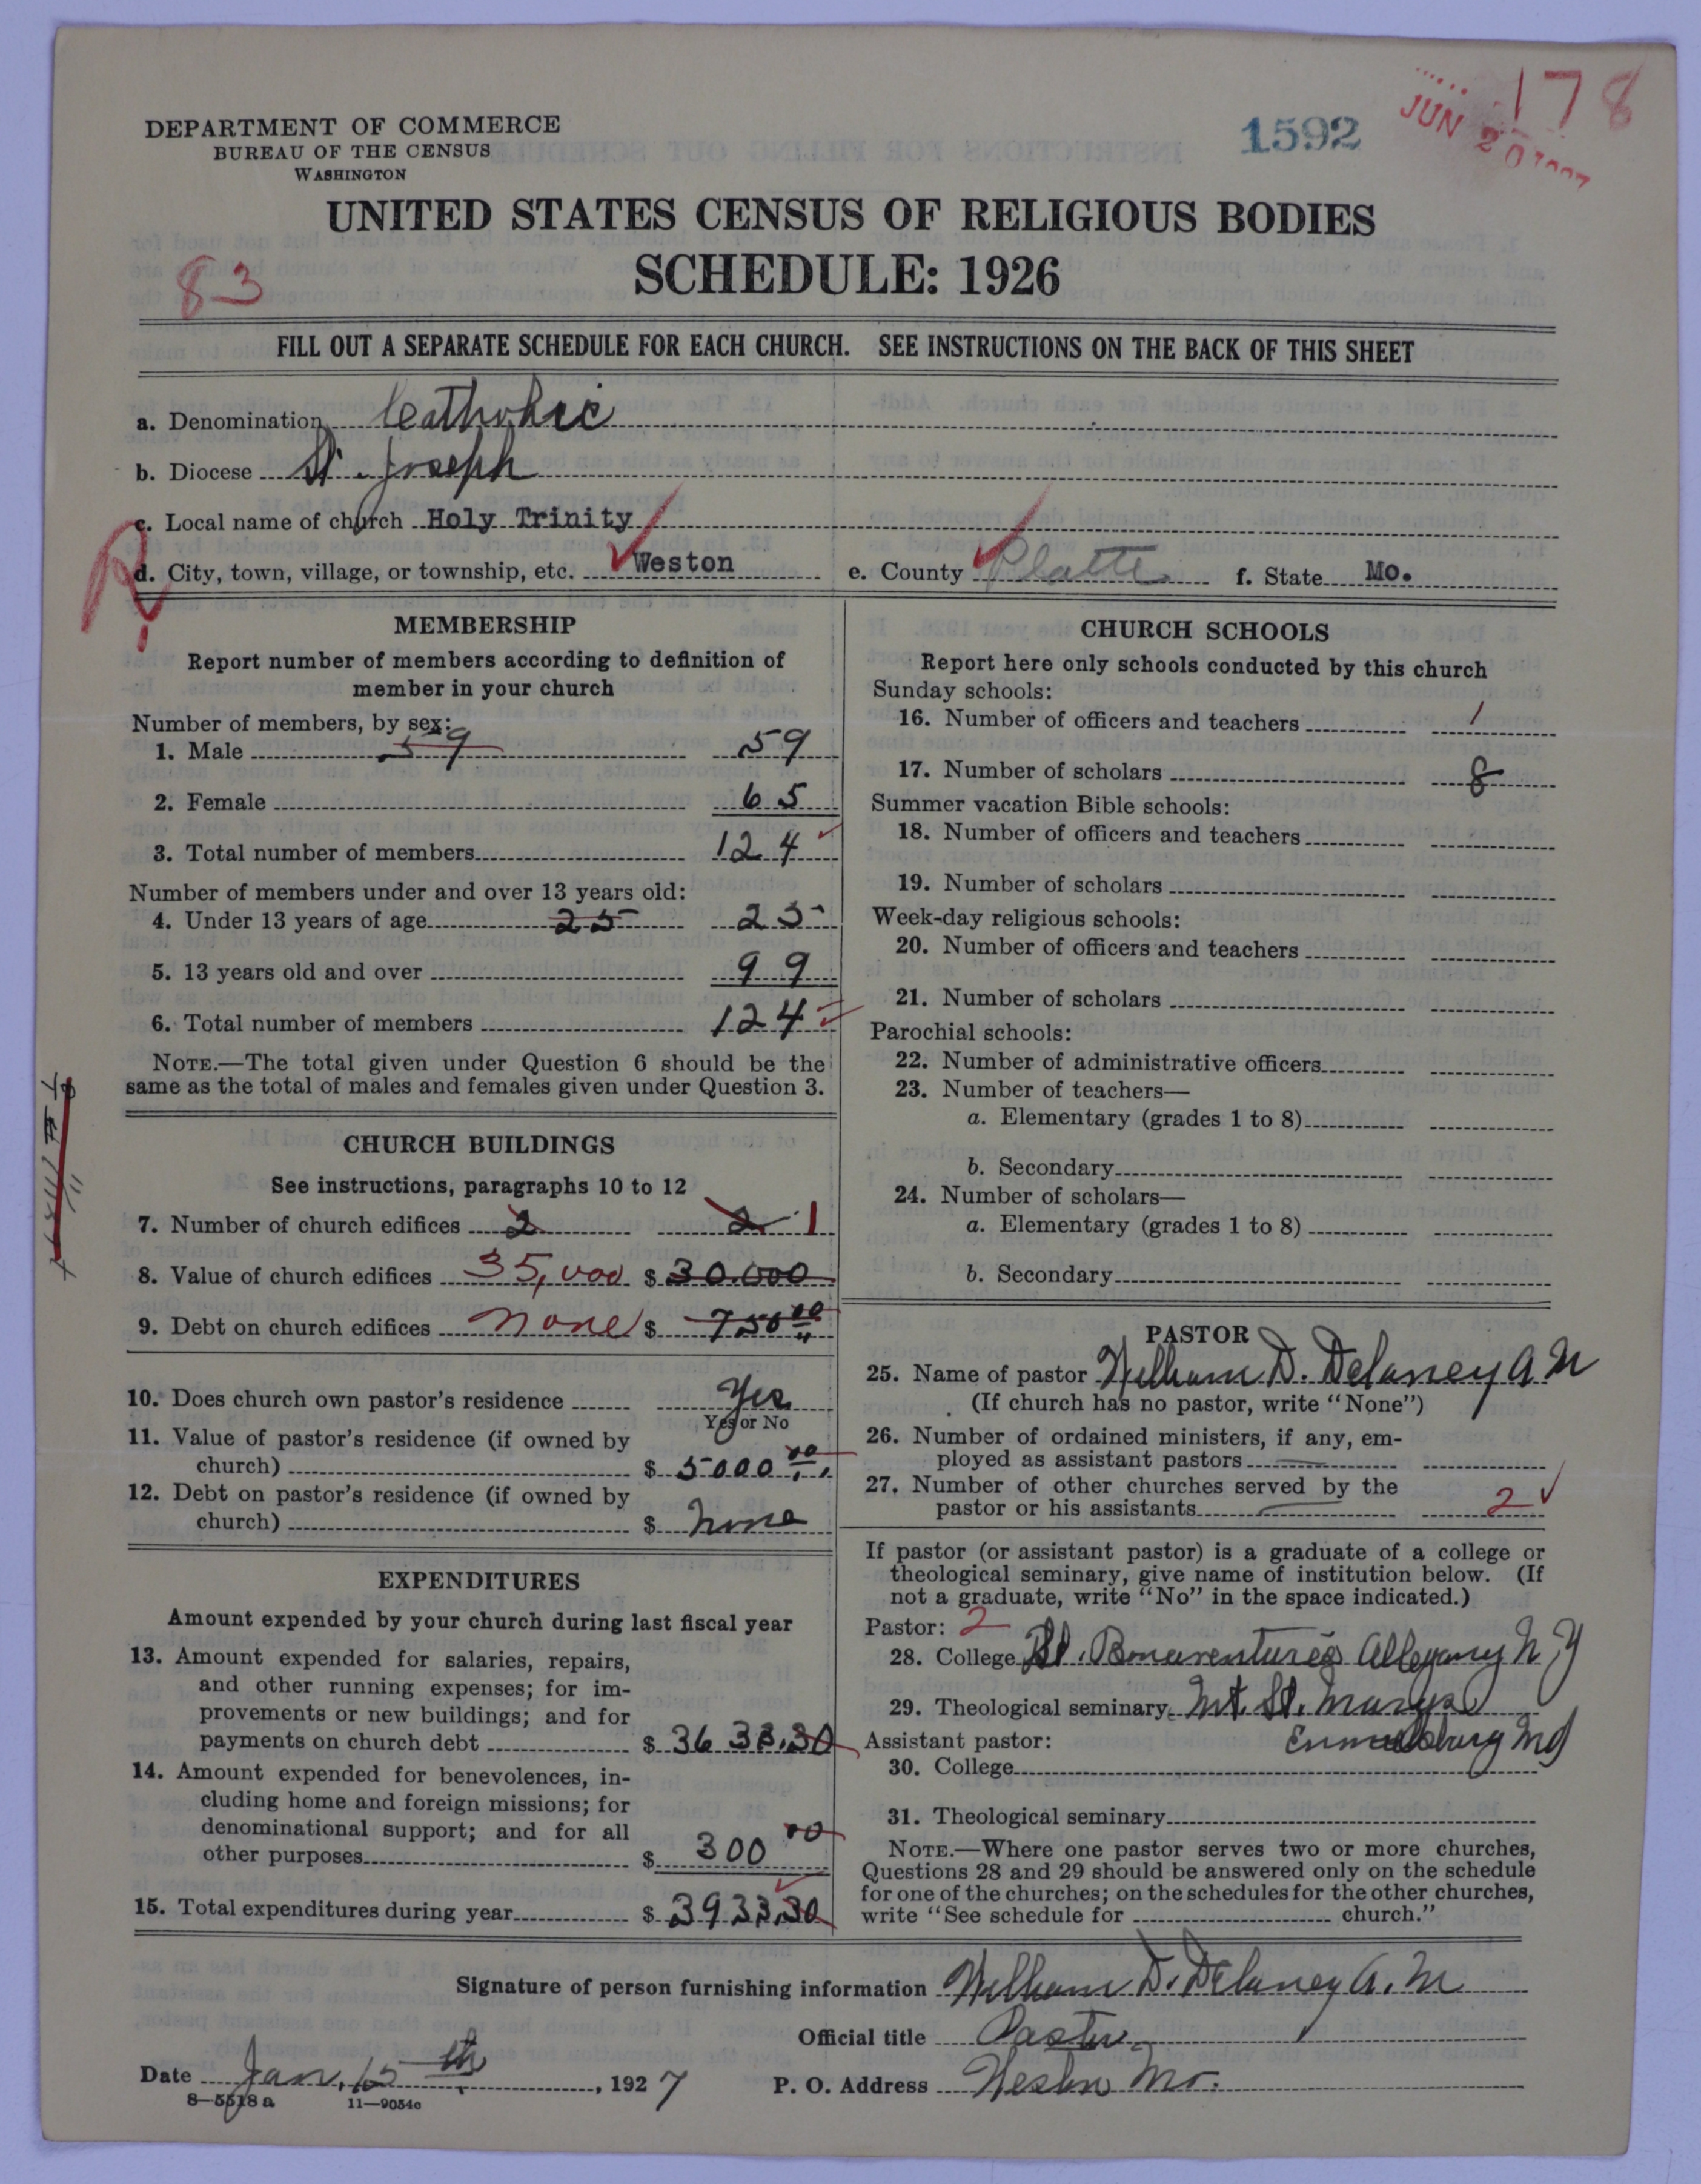 178
JUN 20 1927
1592
DEPARTMENT OF COMMERCE
BUREAU OF THE CENSUS
WASHINGTON
UNITED STATES CENSUS OF RELIGIOUS BODIES
SCHEDULE: 1926
83
FILL OUT A SEPARATE SCHEDULE FOR EACH CHURCH. SEE INSTRUCTIONS ON THE BACK OF THIS SHEET
a. Denomination Catholic
b. Diocese St. Joseph
c. Local name of church Holy Trinity
R
d. City, town, village, or township, etc. Weston e. County Platte f. State Mo.
MEMBERSHIP
Report number of members according to definition of
member in your church
Number of members, by sex:
1. Male 59 59
2. Female 65
3. Total number of members 124
Number of members under and over 13 years old:
4. Under 13 years of age 25 25
5. 13 years old and over 99
6. Total number of members 124
NOTE.—The total given under Question 6 should be the
same as the total of males and females given under Question 3.
CHURCH BUILDINGS
See instructions, paragraphs 10 to 12
7. Number of church edifices 2 2 1
8. Value of church edifices 35,000 $ 30.000
9. Debt on church edifices none $ 750 00
10. Does church own pastor's residence Yes
Yes or No
11. Value of pastor's residence (if owned by
church) $ 5000 00
12. Debt on pastor's residence (if owned by
church) $ None
EXPENDITURES
Amount expended by your church during last fiscal year
13. Amount expended for salaries, repairs,
and other running expenses; for im-
provements or new buildings; and for
payments on church debt $ 3633.30
14. Amount expended for benevolences, in-
cluding home and foreign missions; for
denominational support; and for all
other purposes $ 300 00
15. Total expenditures during year $ 3933.30
CHURCH SCHOOLS
Report here only schools conducted by this church
Sunday schools:
16. Number of officers and teachers 1
17. Number of scholars 8
Summer vacation Bible schools:
18. Number of officers and teachers
19. Number of scholars
Week-day religious schools:
20. Number of officers and teachers
21. Number of scholars
Parochial schools:
22. Number of administrative officers
23. Number of teachers—
a. Elementary (grades 1 to 8)
b. Secondary
24. Number of scholars—
a. Elementary (grades 1 to 8)
b. Secondary
PASTOR
25. Name of pastor William D. Delaney A M
(If church has no pastor, write "None")
26. Number of ordained ministers, if any, em-
ployed as assistant pastors
27. Number of other churches served by the
pastor or his assistants 2
If pastor (or assistant pastor) is a graduate of a college or
theological seminary, give name of institution below. (If
not a graduate, write "No" in the space indicated.)
Pastor: 2
28. College St. Bonaventures Allegany N Y
29. Theological seminary Mt. St. Marys
Assistant pastor: Emmitsburg Md
30. College
31. Theological seminary
NOTE.—Where one pastor serves two or more churches,
Questions 28 and 29 should be answered only on the schedule
for one of the churches; on the schedules for the other churches,
write "See schedule for church."
Signature of person furnishing information William D. Delaney A. M
Official title Pastor
Date Jan. 15th, 1927 P. O. Address Weston Mo.
8—5518a 11—9054c